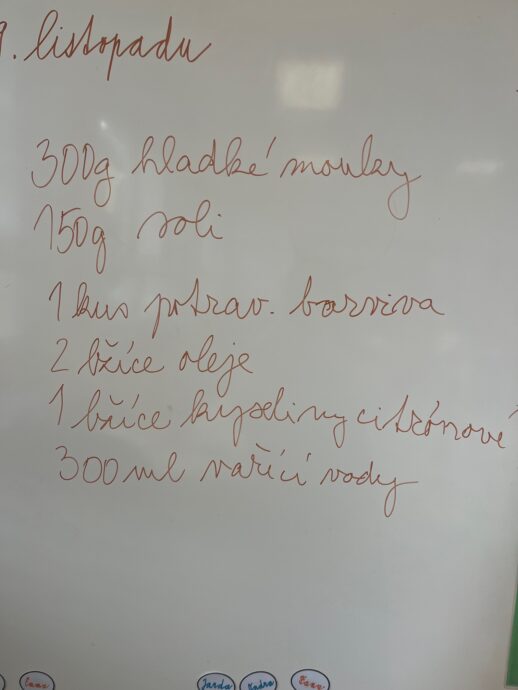 9. listopadu
300g hladké mouky
150g soli
1 kus potrav. barviva
2 lžíce oleje
1 lžíce kyseliny citrónové
300 ml vařící vody
Jarda